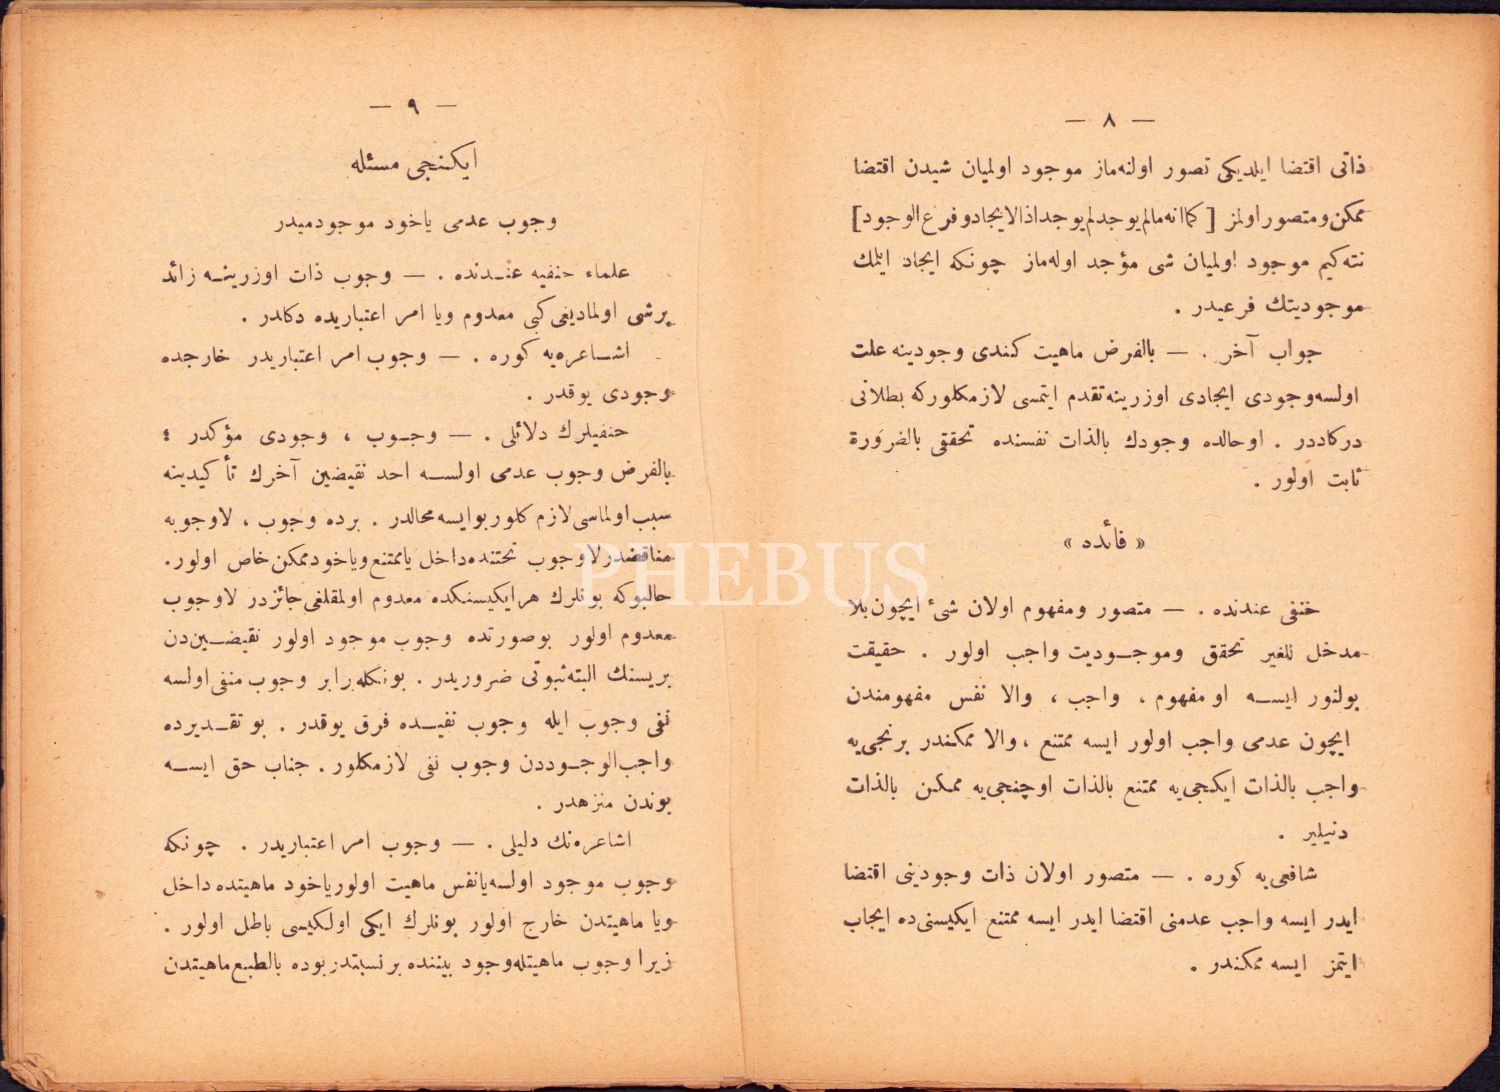 — ٨ —
ذاتی اقتضا ایلدیکی تصور اولنه‌ماز موجود اولمیان شیدن اقتضا
ممکن و متصور اولمز [ کما انه مالم یوجد لم یوجد اذ الایجاد فرع الوجود ]
نته کیم موجود اولمیان شی مؤجد اوله‌ماز چونکه ایجاد ایتمك
موجودیتك فرعیدر .
جواب آخر . — بالفرض ماهیت کندی وجودینه علت
اولسه وجودی ایجادی اوزرینه تقدم ایتمسی لازمکلورکه بطلانی
درکاددر . اوحالده وجودك بالذات نفسنده تحققی بالضرورة
ثابت اولور .
« فائدد »
حنفی عندنده . — متصور ومفهوم اولان شیٔ ایچون بلا
مدخل للغیر تحقق وموجودیت واجب اولور . حقیقت
بولنور ایسه او مفهوم ، واجب ، والا نفس مفهومندن
ایچون عدمی واجب اولور ایسه ممتنع ، والا ممکندر برنجی‌یه
واجب بالذات ایکجی‌یه ممتنع بالذات اوچنجی‌یه ممکن بالذات
دنیلیر .
شافعی‌یه کوره . — متصور اولان ذات وجودینی اقتضا
ایدر ایسه واجب عدمنی اقتضا ایدر ایسه ممتنع ایکیسنی‌ده ایجاب
ایتمز ایسه ممکندر .
— ٩ —
ایکنجی مسئله
وجوب عدمی یاخود موجودمیدر
علماء حنفیه عندنده . — وجوب ذات اوزرینه زائد
برشی اولمادیغی کبی معدوم ویا امر اعتباریده دکلدر .
اشاعره‌یه کوره . — وجوب امر اعتباریدر خارجده
وجودی یوقدر .
حنفیلرك دلائلی . — وجوب ، وجودی مؤکدر ؛
بالفرض وجوب عدمی اولسه احد نقیضین آخرك تأکیدینه
سبب اولماسی لازم کلور بوایسه محالدر . برده وجوب ، لاوجوبه
مناقضدر لاوجوب تحتنده داخل یا ممتنع ویاخود ممکن خاص اولور.
حالبوکه بونلرك هر ایکیسنکده معدوم اولمقلغی جائزدر لاوجوب
معدوم اولور بوصورتده وجوب موجود اولور نقیضین‌دن
بریسنك البته ثبوتی ضروریدر . بونکله برابر وجوب منفی اولسه
نفی وجوب ایله وجوب نفیده فرق یوقدر . بو تقدیرده
واجب‌الوجوددن وجوب نفی لازمکلور . جناب حق ایسه
بوندن منزهدر .
اشاعره‌نك دلیلی . — وجوب امر اعتباریدر . چونکه
وجوب موجود اولسه یا نفس ماهیت اولور یاخود ماهیتده داخل
ویا ماهیتدن خارج اولور بونلرك ایکی اولکیسی باطل اولور .
زیرا وجوب ماهیتله وجود بیننده بر نسبتدر بوده بالطبع ماهیتدن
PHEBUS